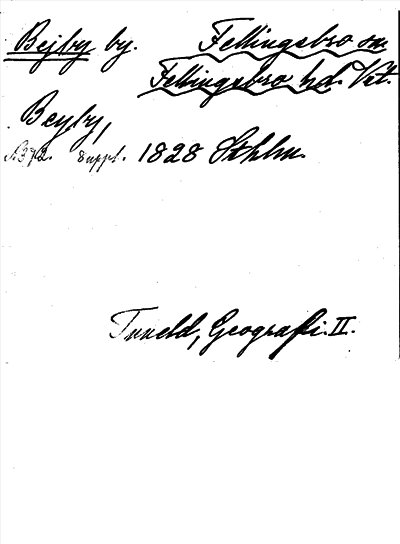 Bejby by. Fellingsbro sn.
Fellingsbro hd. Vstm.
Beyby,
S. 372. Suppl. 1828 Sthlm.
Tuneld, Geografi. II.